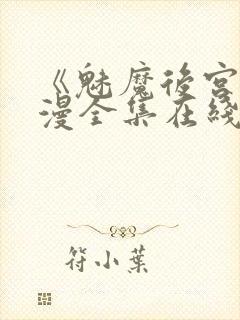 《魅魔後宮
漫全集在綫
符小葉